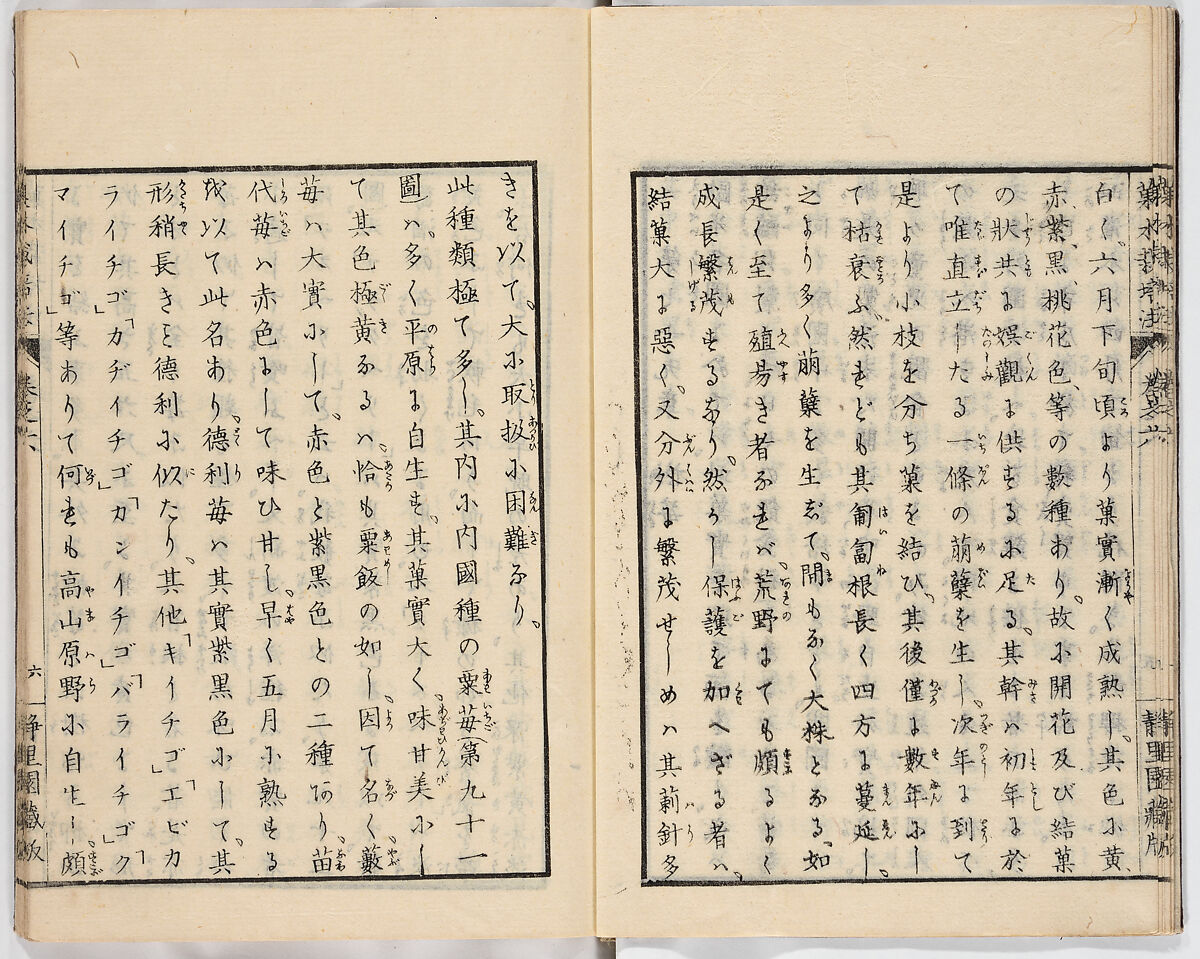 菓木栽培法 卷之六 静里園藏版
白く、六月下旬頃より菓實漸く成熟し、其色ハ黄、
赤、紫、黒、桃花色、等の數種あり、故ニ開花及び結菓
の狀共に娯觀に供するに足る、其幹ハ初年に於
て唯直立したる一條の萠蘖を生し、次年に到て
是より小枝を分ち菓を結ひ、其後僅に數年にし
て枯衰ふ然れども其匍匐根長く四方に蔓延し、
之より多く萠蘖を生じて、間もなく大株となる、如
是く至て殖昜き者なれバ、荒野にても頗るよく
成長繁茂するなり、然りし保護を加へざる者ハ、
結菓大に惡く、又分外に繁茂せしめハ其莿針多
きを以て、大に取扱に困難なり、
此種類極て多し、其内に内國種の粟苺第九十一
圖ハ、多く平原に自生す、其菓實大く、味甘美にし
て其色極黄なるハ、恰も粟飯の如し、因て名く藪
苺ハ大實にして、赤色と紫黒色との二種あり、苗
代苺ハ赤色にして味ひ甘し早く五月に熟する
を以て此名あり、德利苺ハ其實紫黒色にして、其
形稍長きこと德利に似たり、其他「キイチゴ」「エビカ
ライチゴ」「カヂイチゴ」「カンイチゴ」「バライチゴ」「ク
マイチゴ」等ありて何れも高山原野に自生し頗
六 静里園藏版